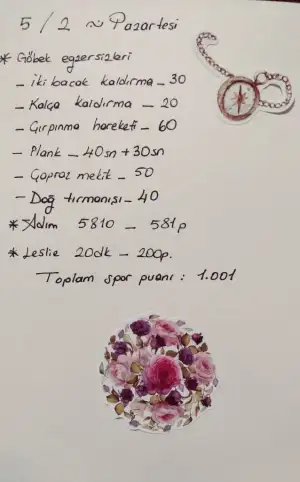 5/2 ~ Pazartesi
* Göbek egzersizleri
- iki bacak kaldırma - 30
- Kalça kaldırma - 20
- Çırpınma hareketi - 60
- Plank - 40sn + 30sn
- Çapraz mekik - 50
- Dağ tırmanışı - 40
* Adım 5810 - 581p
* Leslie 20dk - 200p.
Toplam spor puanı : 1.001